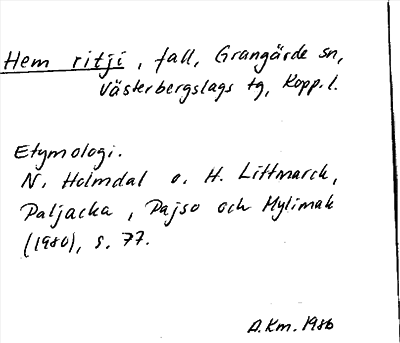 Hem ritji, fall, Grangärde sn,
Västerbergslags tg, Kopp. l.
Etymologi.
N. Holmdal o. H. Littmarck,
Paljacka, Pajso och Mylimak
(1980), s. 77.
A.Km. 1986